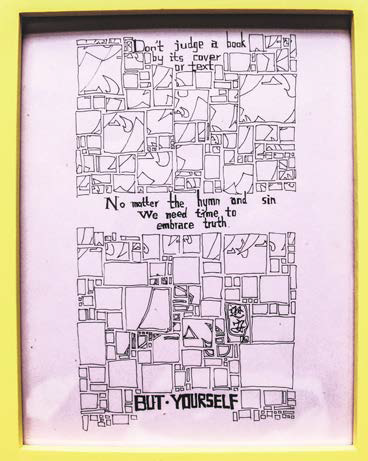 Don't judge a book
by its cover
or text
No matter the hymn and sin
We need time to
embrace truth.
BUT·YOURSELF